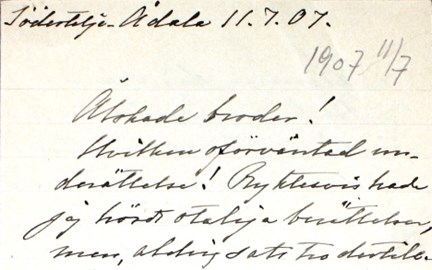 Södertelje-Ådala 11.7.07.
1907 11/7
Älskade broder!
Hvilken oförväntad un-
derättelse! Ryktesvis hade
jag hört otaliga berättelser,
men, aldrig satt tro dertill.